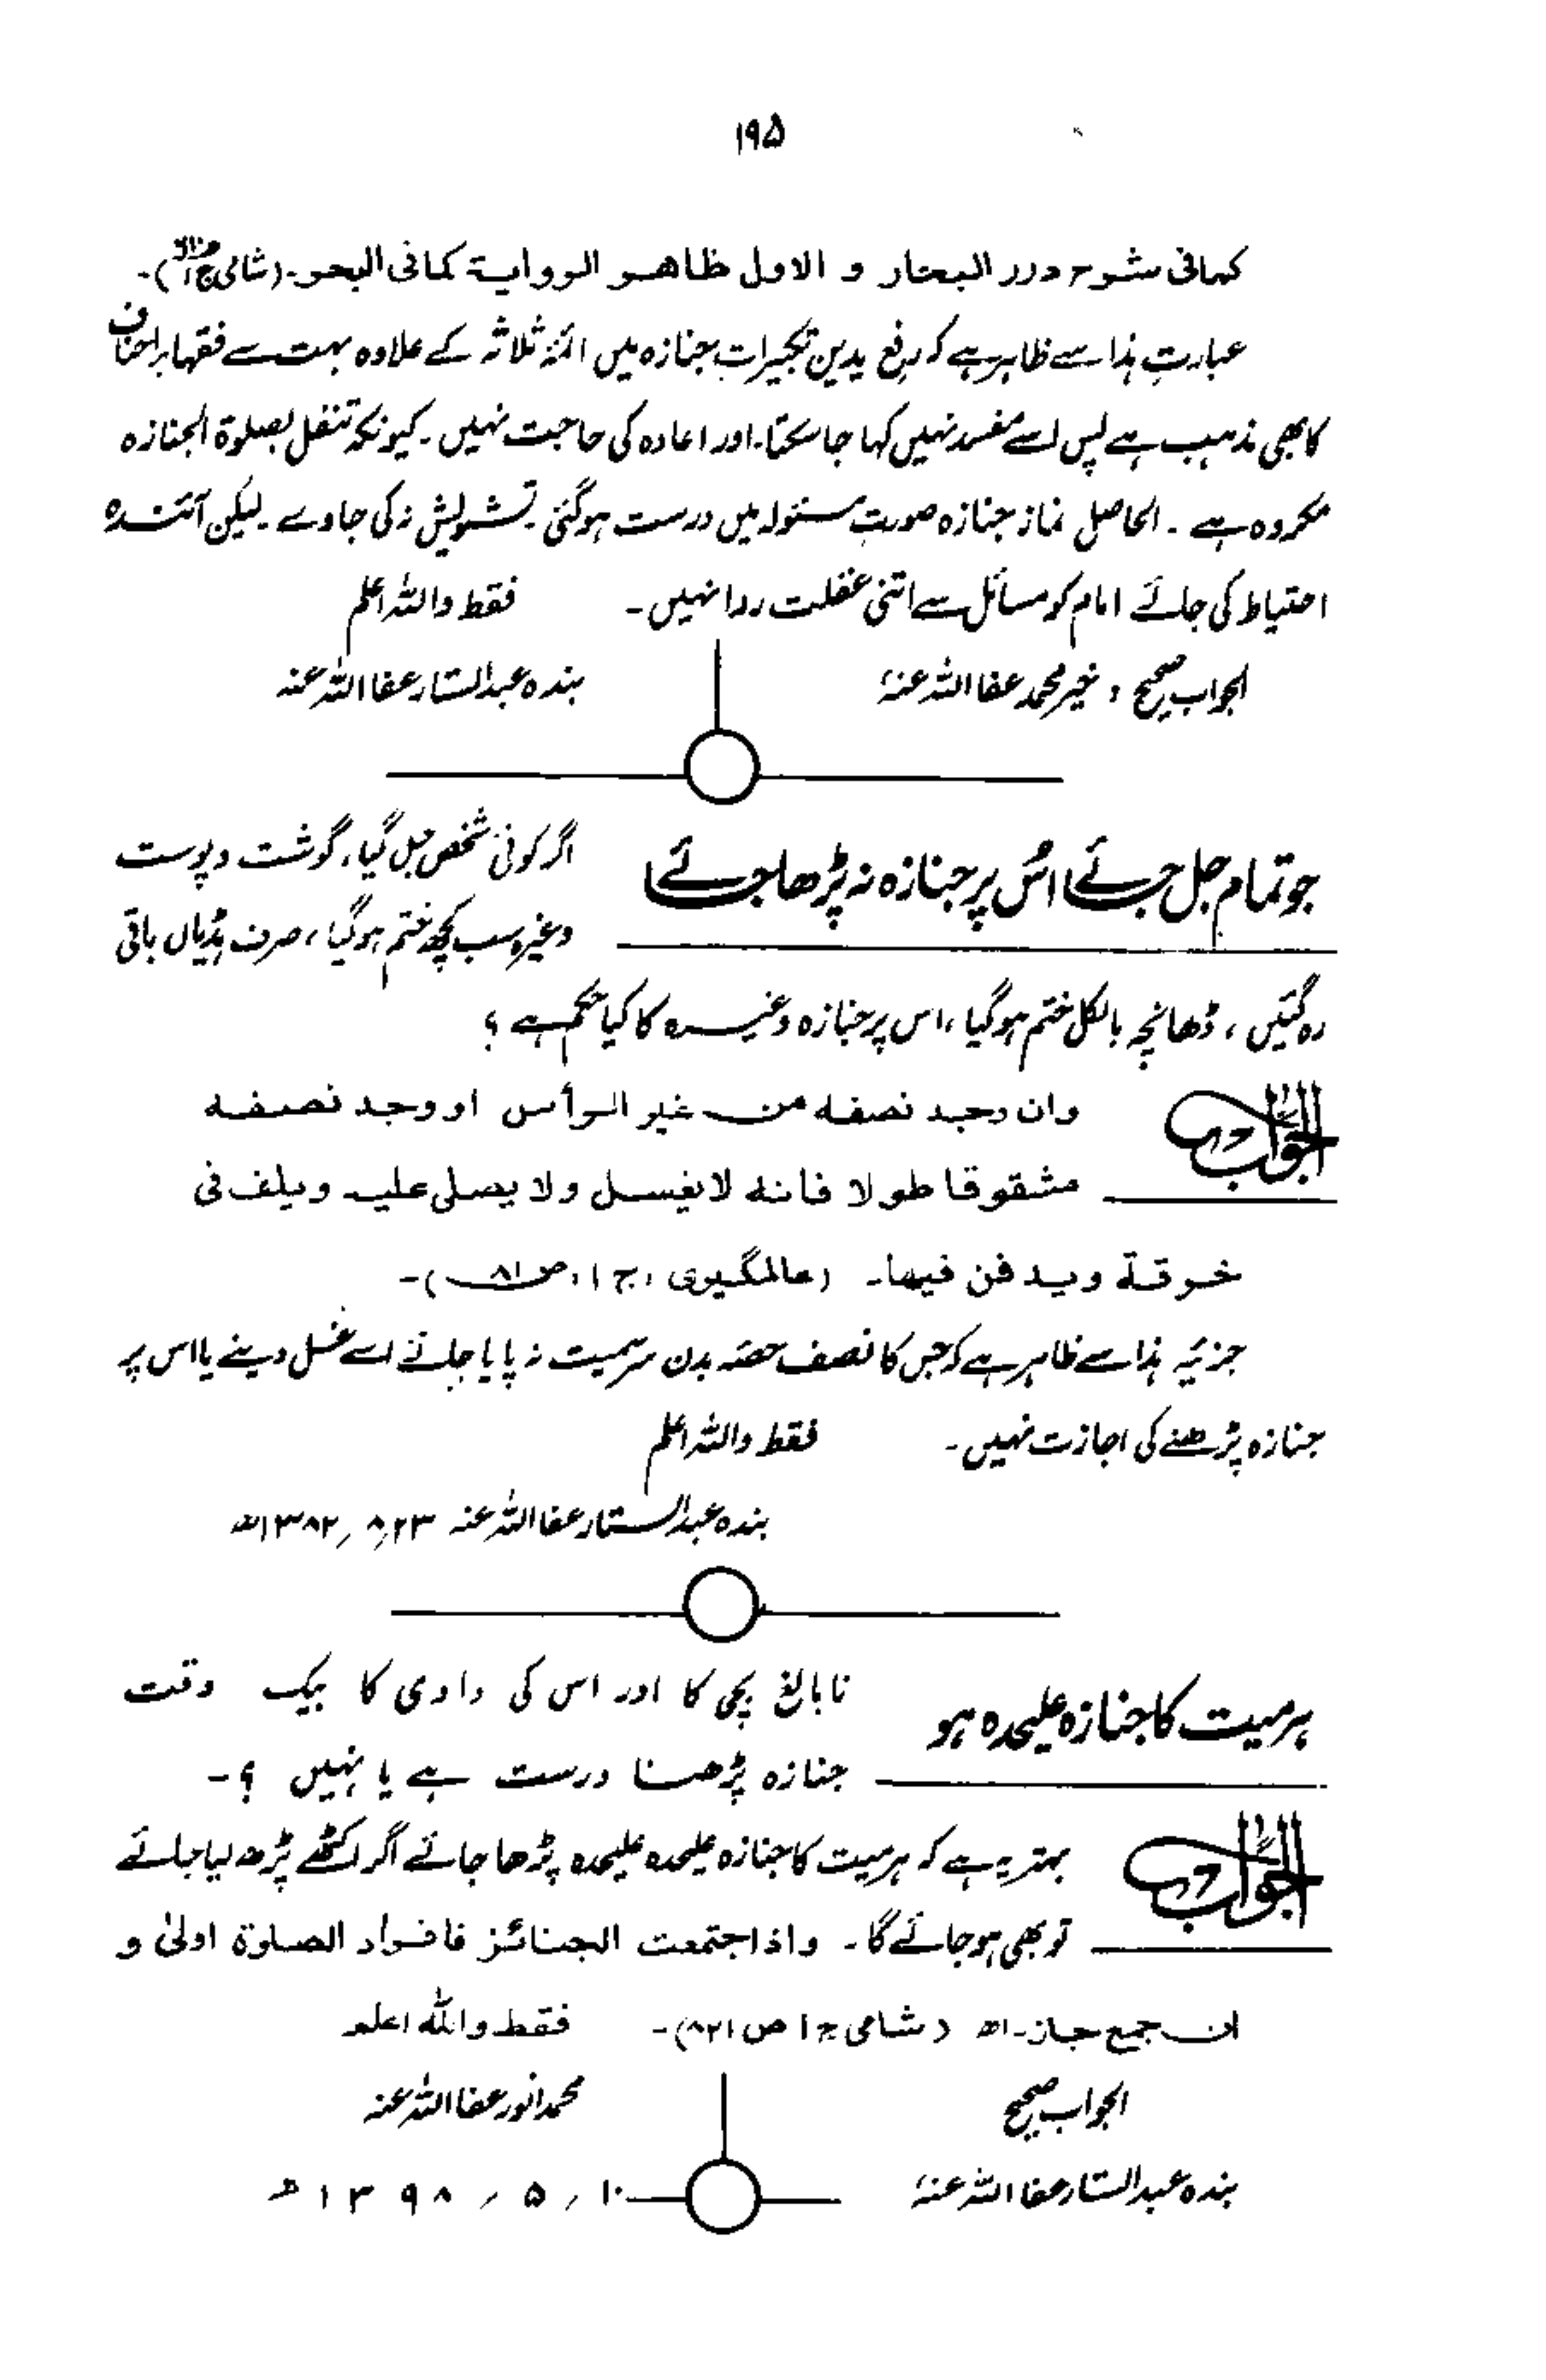 ۱۹۵
کمافی شرح درر البحار و الاول ظاهر الروایة کمافی البحر۔ (شامی ج۱)۔
عبارتِ ہذا سے ظاہر ہے کہ رفع یدین تکبیراتِ جنازہ میں ائمہ ثلاثہ کے علاوہ بہت سے فقہاء احناف
کا بھی مذہب ہے پس اسے مفسد نہیں کہا جا سکتا۔ اور اعادہ کی حاجت نہیں۔ کیونکہ تنفل بصلوٰۃ الجنازہ
مکروہ ہے ۔ الحاصل نماز جنازہ صورتِ مسئولہ میں درست ہوگئی۔ تشویش نہ کی جاوے۔ لیکن آئندہ
احتیاط کی جائے امام کو مسائل سے اتنی غفلت روا نہیں۔ فقط واللہ اعلم
الجواب صحیح : خیر محمد عفا اللہ عنہٗ بندہ عبدالستار عفا اللہ عنہ
جو تمام جل جائے اس پر جنازہ نہ پڑھا جائے
اگر کوئی شخص جل گیا، گوشت و پوست
وغیرہ سب کچھ ختم ہوگیا، صرف ہڈیاں باقی
رہ گئیں، ڈھانچہ بالکل ختم ہوگیا، اس پر جنازہ وغیرہ کا کیا حکم ہے ؟
الجواب
وان وجد نصفه من غیر الرأس او وجد نصفه
مشقوقا طولا فانه لا یغسل ولا یصلی علیه ویلف فی
خرقة ویدفن فیها۔ (عالمگیری ، ج ۱، ص۸۱)۔
جزئیہ ہذا سے ظاہر ہے کہ جس کا نصف حصہ بدن سرسمیت نہ پایا جائے اسے غسل دینے یا اس پر
جنازہ پڑھنے کی اجازت نہیں۔ فقط واللہ اعلم
بندہ عبدالستار عفا اللہ عنہ ۲۳؍۸؍۱۳۸۲ھ
ہر میت کا جنازہ علیحدہ ہو
نابالغ بچی کا اور اس کی دادی کا بیک وقت
جنازہ پڑھنا درست ہے یا نہیں ؟۔
الجواب
بہتر یہ ہے کہ ہر میت کا جنازہ علیحدہ علیحدہ پڑھا جائے اگر اکٹھے پڑھ لیا جائے
تو بھی ہو جائے گا۔ واذا اجتمعت الجنائز فافراد الصلوة اولیٰ و
ان جمع جاز۔ اھ (شامی ج۱ ص۸۲۱)۔ فقط واللہ اعلم
الجواب صحیح محمد انور عفا اللہ عنہ
بندہ عبدالستار عفا اللہ عنہٗ ۱۰؍ ۵؍ ۱۳۹۸ھ